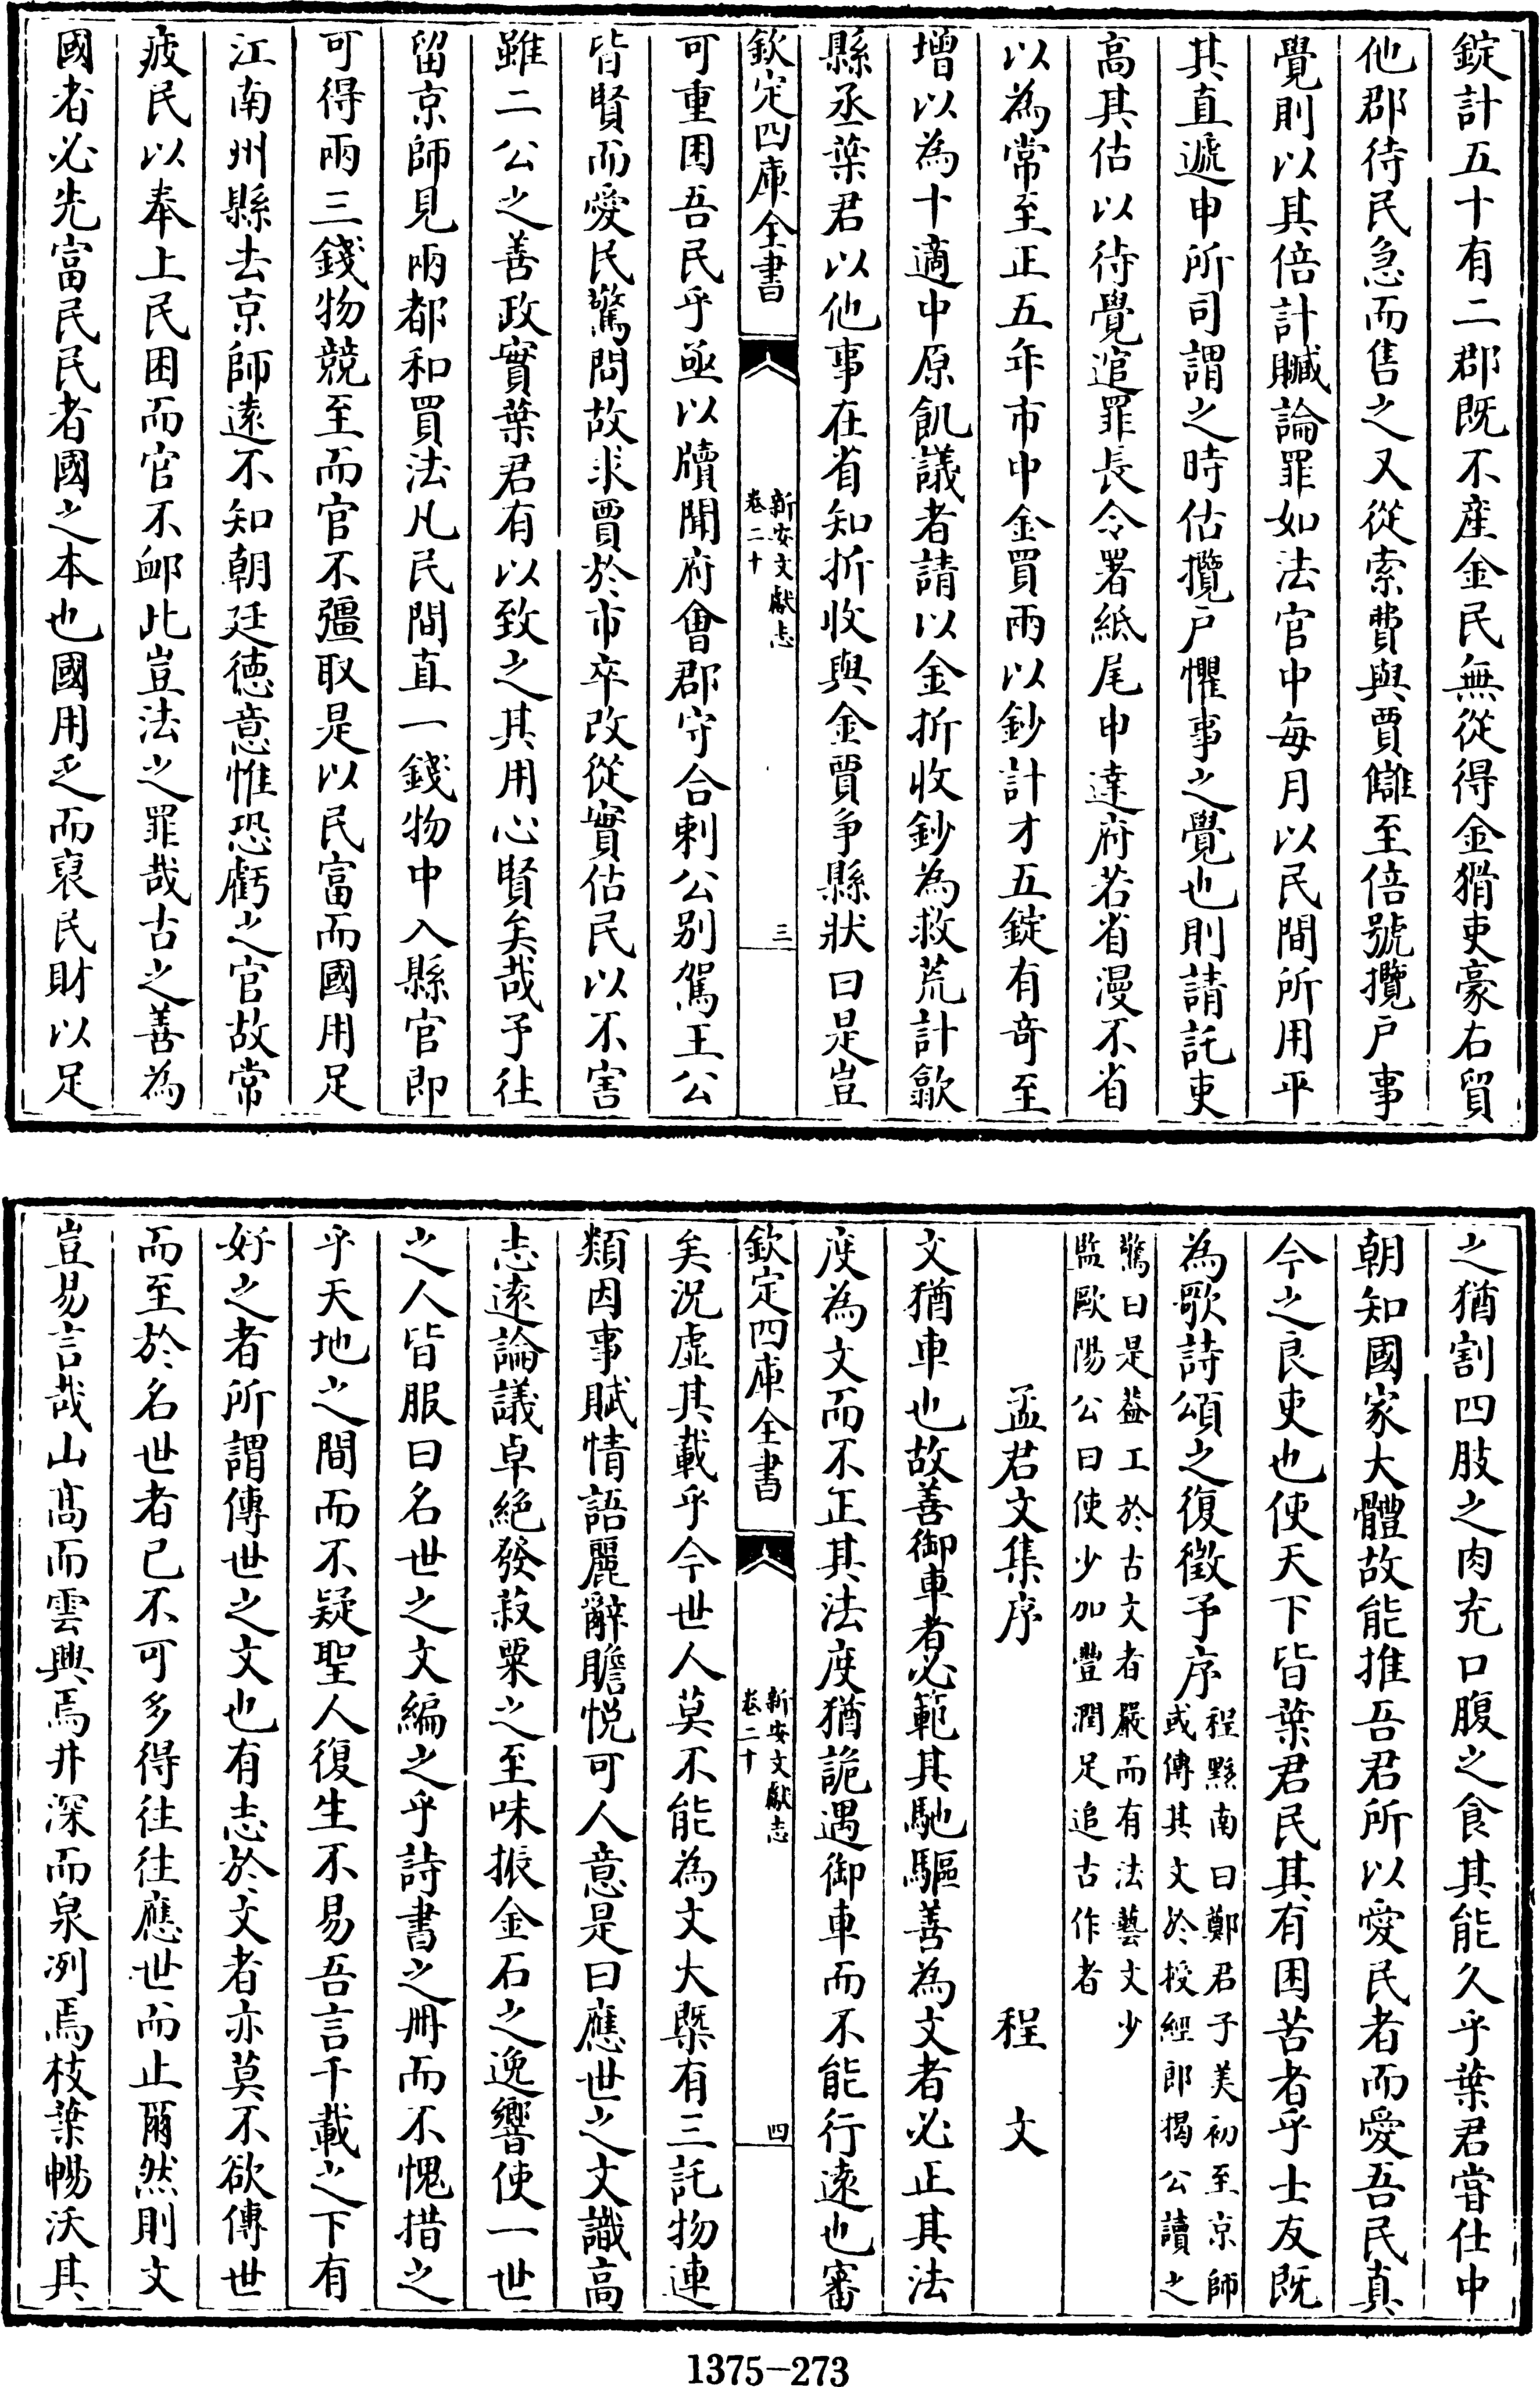 錠計五十有二郡既不産金民無從得金猾吏豪右貿
他郡待民急而售之又從索費與賈讎至倍號攬戸事
覺則以其倍計贓論罪如法官中每月以民間所用平
其直遞申所司謂之時估攬戸懼事之覺也則請託吏
高其估以待覺追罪長令署紙尾申達府若省漫不省
以為常至正五年市中金買兩以鈔計才五錠有奇至
增以為十適中原飢議者請以金折收鈔為救荒計歙
縣丞葉君以他事在省知折收與金賈争縣狀曰是豈
欽定四庫全書
新安文獻志
卷二十
三
可重困吾民乎亟以牘聞府會郡守合剌公别駕王公
皆賢而愛民驚問故求賈於市卒改從實估民以不害
雖二公之善政實葉君有以致之其用心賢矣哉予往
留京師見兩都和買法凡民間直一錢物中入縣官即
可得兩三錢物競至而官不彊取是以民富而國用足
江南州縣去京師逺不知朝廷徳意惟恐虧之官故常
疲民以奉上民困而官不䘏此豈法之罪哉古之善為
國者必先富民民者國之本也國用乏而裒民財以足
之猶割四肢之肉充口腹之食其能久乎葉君嘗仕中
朝知國家大體故能推吾君所以愛民者而愛吾民真
今之良吏也使天下皆葉君民其有困苦者乎士友既
為歌詩頌之復徵予序程黟南曰鄭君子美初至京師
或傳其文於授經郎揭公讀之
驚曰是益工於古文者嚴而有法藝文少
監歐陽公曰使少加豐潤足追古作者
孟君文集序　程文
文猶車也故善御車者必範其馳驅善為文者必正其法
度為文而不正其法度猶詭遇御車而不能行逺也審
欽定四庫全書
新安文獻志
卷二十
四
矣況虚其載乎今世人莫不能為文大槩有三託物連
類因事賦情語麗辭贍悦可人意是曰應世之文識高
志逺論議卓絶發菽粟之至味振金石之逸響使一世
之人皆服曰名世之文編之乎詩書之冊而不愧措之
乎天地之間而不疑聖人復生不易吾言千載之下有
好之者所謂傳世之文也有志於文者亦莫不欲傳世
而至於名世者已不可多得往往應世而止爾然則文
豈易言哉山髙而雲興焉井深而泉冽焉枝葉暢沃其
1375-273